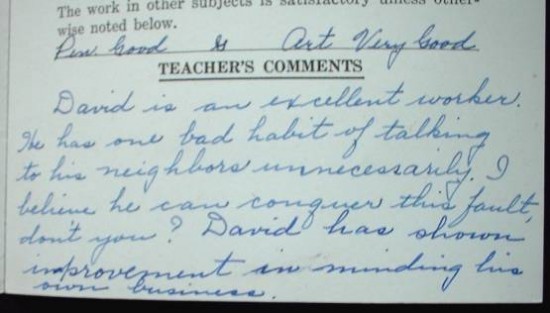 The work in other subjects is satisfactory unless other-
wise noted below.
Pen Good G Art Very Good
TEACHER'S COMMENTS
David is an excellent worker.
He has one bad habit of talking
to his neighbors unnecessarily. I
believe he can conquer this fault,
don't you? David has shown
improvement in minding his
own business.